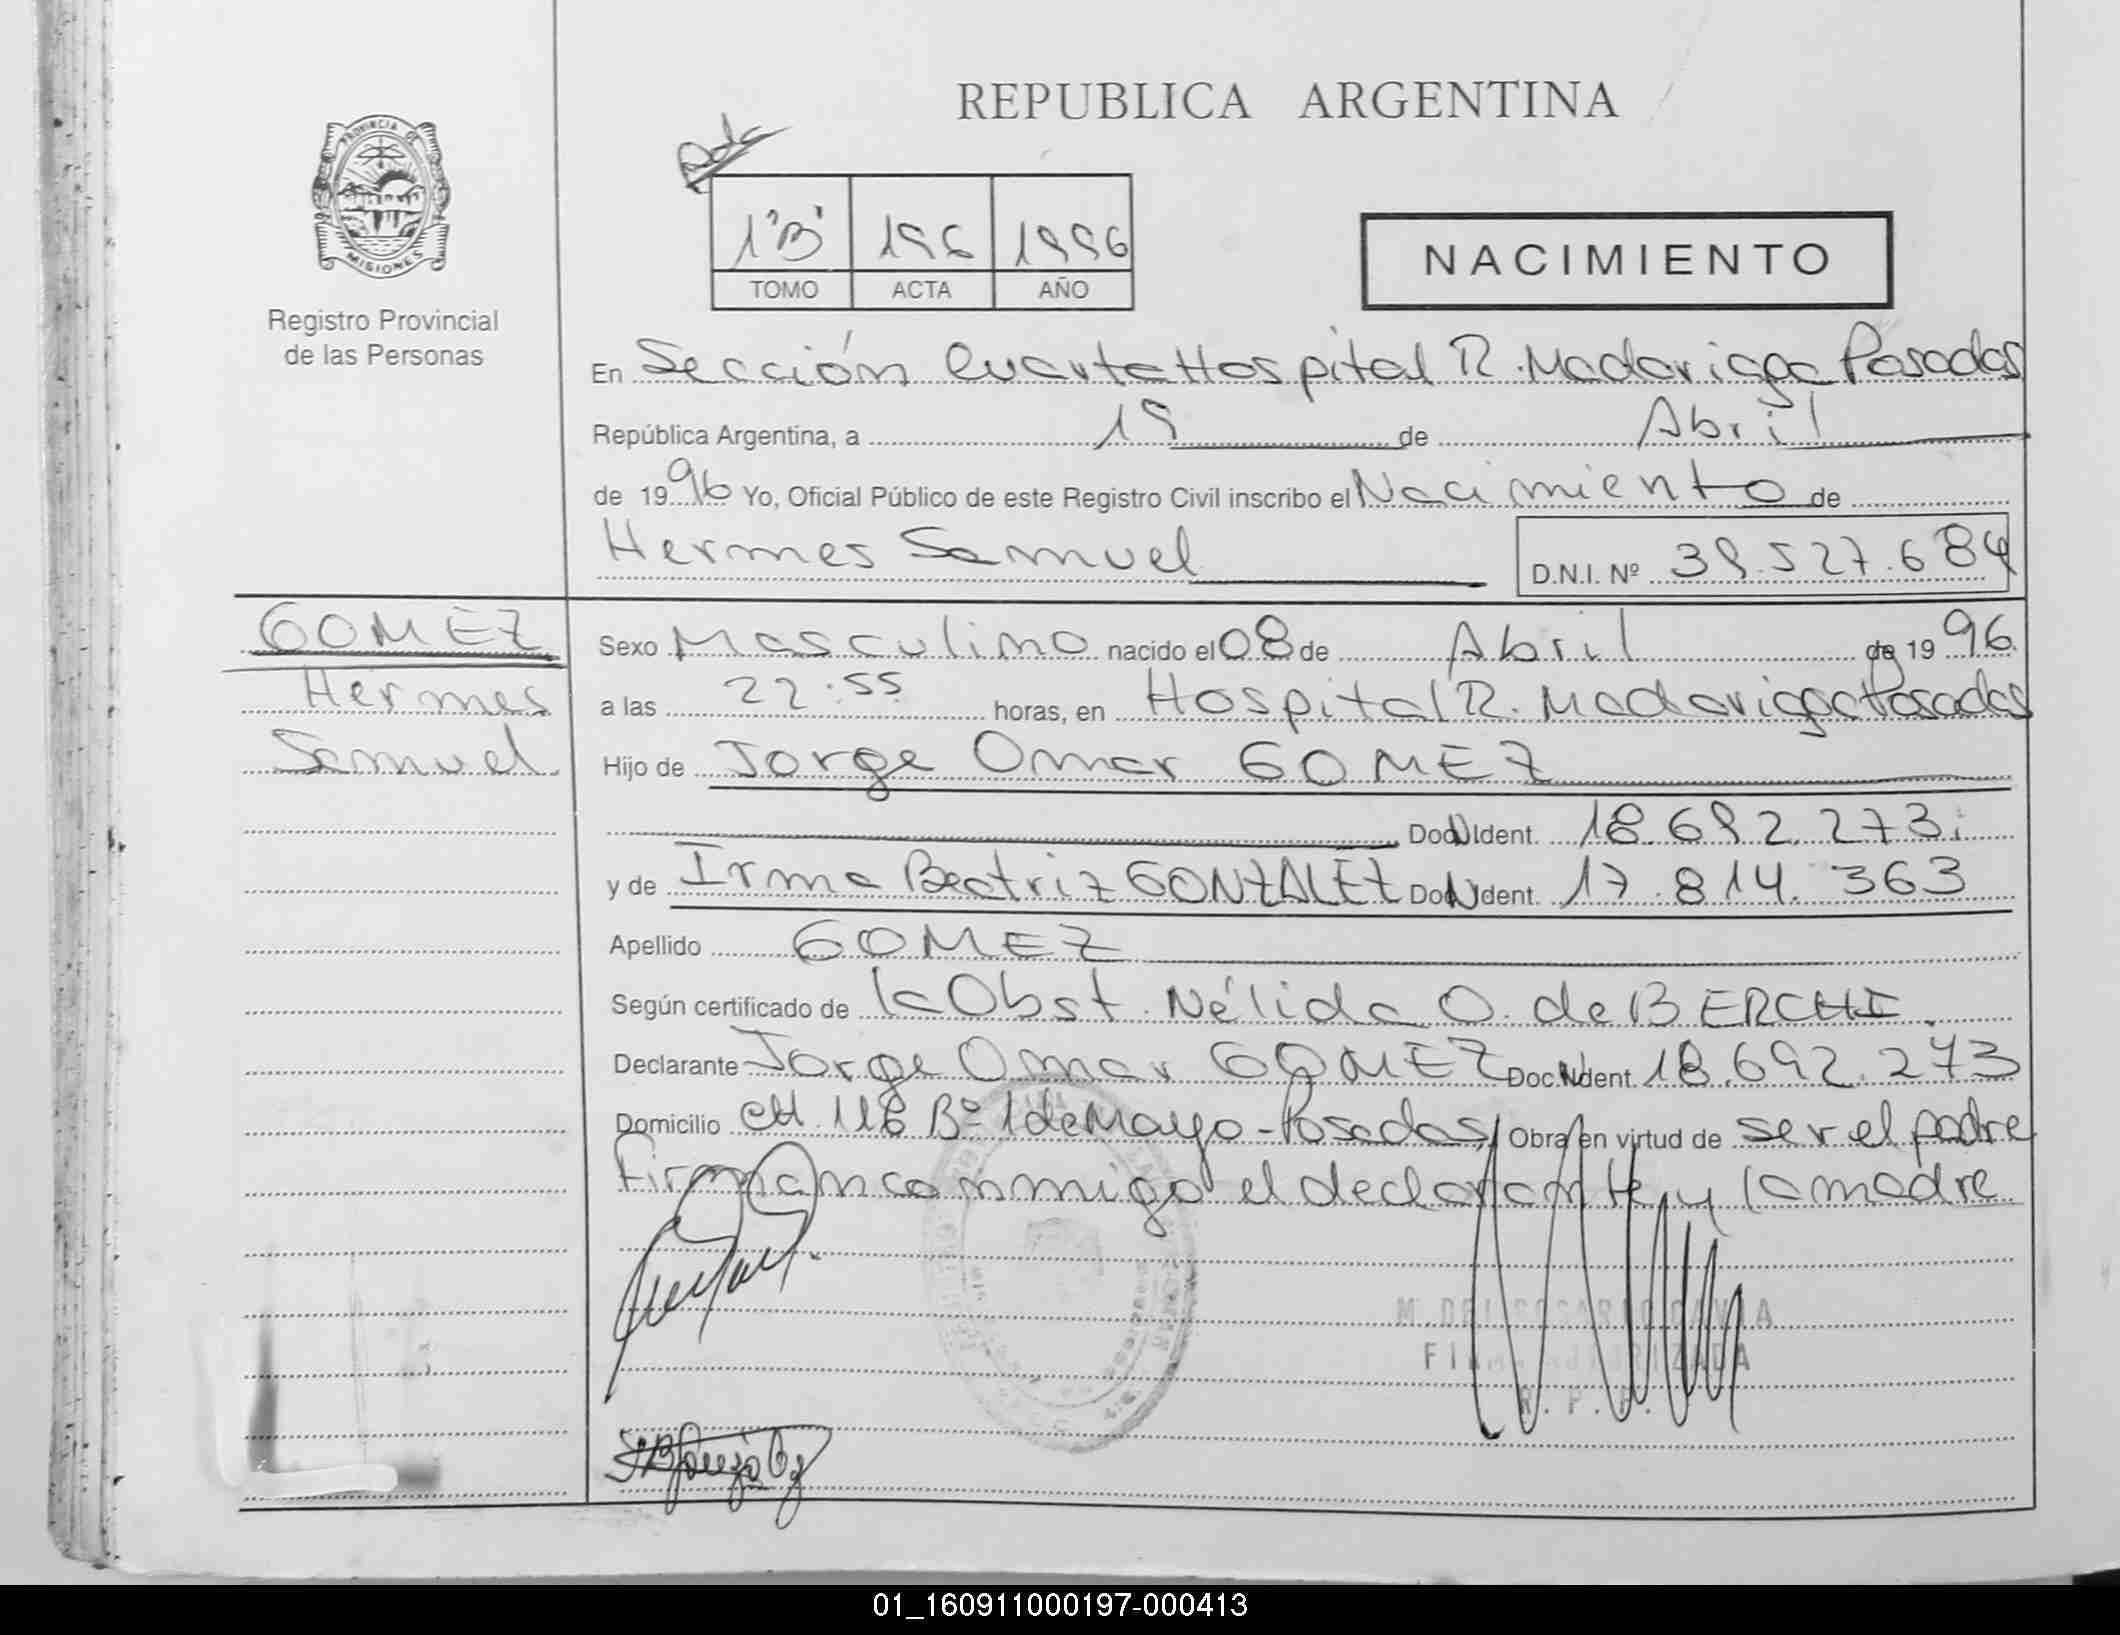 REPUBLICA ARGENTINA
PROVINCIA DE
MISIONES
Registro Provincial
de las Personas
1 "B" 196 1996
TOMO ACTA AÑO
NACIMIENTO
En Sección Cuarta Hospital R. Madariaga Posadas
República Argentina, a 19 de Abril
de 1996 Yo, Oficial Público de este Registro Civil inscribo el Nacimiento de
Hermes Samuel
D.N.I. Nº 39.527.684
GOMEZ
Hermes
Samuel
Sexo Masculino nacido el 08 de Abril de 1996.
a las 22:55 horas, en Hospital R. Madariaga Posadas
Hijo de Jorge Omar GOMEZ
Doc N Ident. 18.692.273.
y de Irma Beatriz GONZALEZ Doc N Ident. 17.814.363
Apellido GOMEZ
Según certificado de la Obst. Nélida O. de BERCHI.
Declarante Jorge Omar GOMEZ Doc N Ident. 18.692.273
Domicilio CH. 116 Bº 1 de Mayo - Posadas, Obra en virtud de ser el padre
Firman conmigo el declarante y la madre
FIRMA AUTORIZADA
R. P. P.
01_160911000197-000413